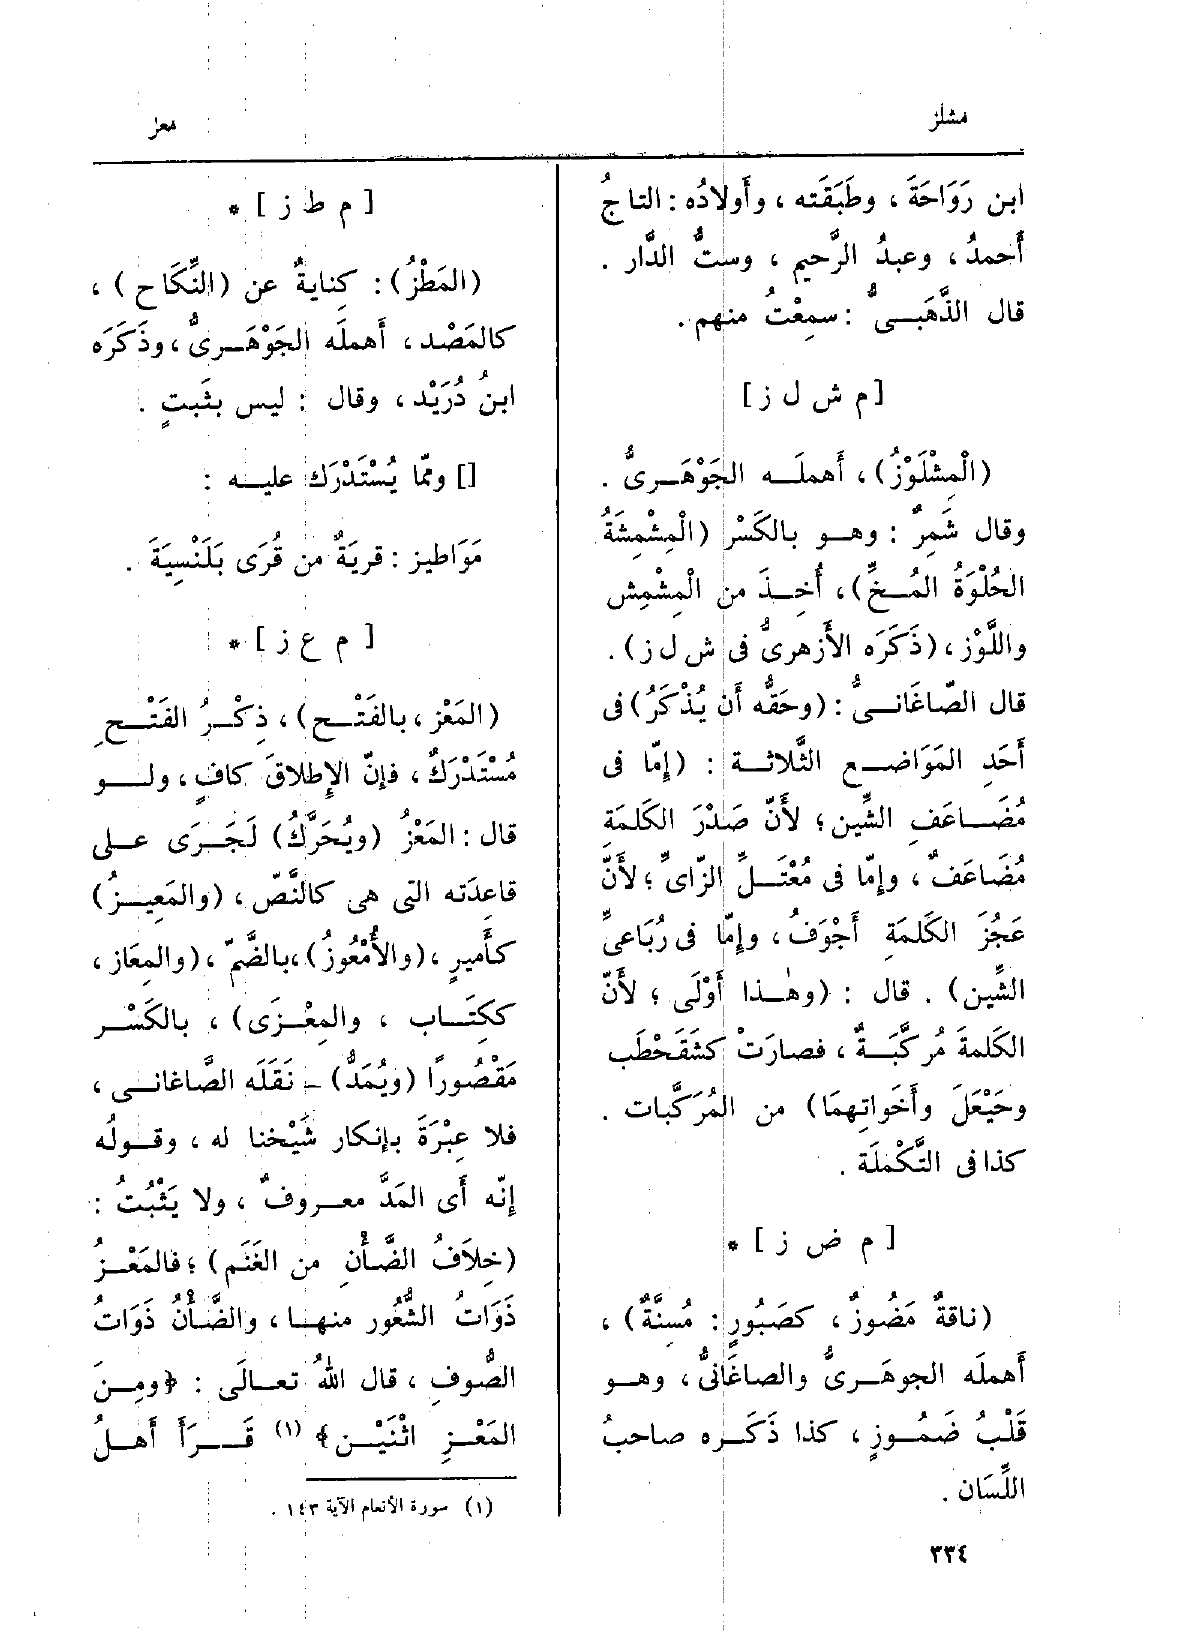 مشلز
معز
ابن رَوَاحَةَ ، وطَبَقَته ، وأَولادُه : التاجُ
أَحمدُ ، وعبدُ الرَّحيم ، وستُّ الدَّار .
قال الذَّهَبــىُّ : سمِعْتُ منهم .
[ م ش ل ز ]
(الْمِشْلَوْزُ) ، أَهملَــه الجَوْهَــرىُّ .
وقال شَمِرٌ : وهــو بالكَسْر (الْمِشْمِشَةُ
الحُلْوَةُ المُــخِّ) ، أُخِــذَ من الْمِشْمِش
واللَّوْز ، (ذَكَرَه الأَزهرىُّ فى ش ل ز) .
قال الصّاغانــىُّ : (وحَقُّه أَن يُذْكَرُ) فى
أَحَدِ المَوَاضــع الثَّلاثــة : (إِمّا فى
مُضَــاعَفِ الشِّين ؛ لأَنّ صَدْرَ الكَلمَة
مُضَاعَفٌ ، وإِمّا فى مُعْتَــلِّ الزّاىِ ؛ لأَنَّ
عَجُزَ الكَلِمَة أَجْوَفُ ، وإِمّا فى رُبَاعىِّ
الشِّين) . قال : (وهٰــذا أَوْلَى ؛ لأَنّ
الكَلمَةَ مُركَّبَــةٌ ، فصارَتْ كشَقَحْطَبٍ
وحَيْعَلَ وأَخَواتِهِمَا) من المُرَكَّبات .
كذا فى التَّكْملَة .
[ م ض ز ] *
(ناقةٌ مَضُوزٌ ، كصَبُورٍ : مُسنَّةٌ) ،
أَهمله الجوهَــرىُّ والصاغَانىُّ ، وهــو
قَلْبُ ضَمُــوزٍ ، كذا ذَكَــره صاحبُ
اللِّسَان .
[ م ط ز ] *
(المَطْزُ) : كِنايةٌ عن (النِّكَاح ) ،
كالمَصْد ، أَهمله الجَوْهَــرىُّ ، وذَكَرَه
ابنُ دُرَيْد ، وقال : ليس بثَبتٍ .
[] وممّا يُسْتَدْرَك عليــه :
مَوَاطيز : قريَةٌ من قُرَى بَلَنْسِيَةَ .
[ م ع ز ] *
(المَعْز ، بالفَتْــح) ، ذِكْــرُ الفَتْــحِ
مُسْتَدْرَكٌ ، فإِنّ الإِطلاقَ كافٍ ، ولــو
قال : المَعْزُ (ويُحَرَّكُ) لَجَــرَى علــى
قاعدَته التى هى كالنَّصِّ ، (والمَعِيــزُ)
كأَميرٍ ، (والأُمْعُوزُ) ، بالضَّمّ ، (والمِعَاز ،
ككِتَــاب ، والمِعْــزَى) ، بالكَسْــر
مَقْصُورًا (ويُمَدُّ) ــ نَقَلَه الصَّاغانــى ،
فلا عِبْرَةَ بإِنكار شَيْخنا له ، وقــولُه
إِنّه أَى المَدَّ معــروفٌ ، ولا يَثْبُتُ :
(خِلاَفُ الضَّــأْنِ من الغَنَم) ؛ فالمَعْــزُ
ذَوَاتُ الشُّعُور منهــا ، والضَّــأْنُ ذَوَاتُ
الصُّوفِ ، قال اللهُ تعــالَى : ﴿ومِــنَ
المَعْــزِ اثْنَيْــن﴾ (١) قَــــرَأَ أَهــلُ
(١) سورة الأنعام الآية ١٤٣ .
٣٣٤